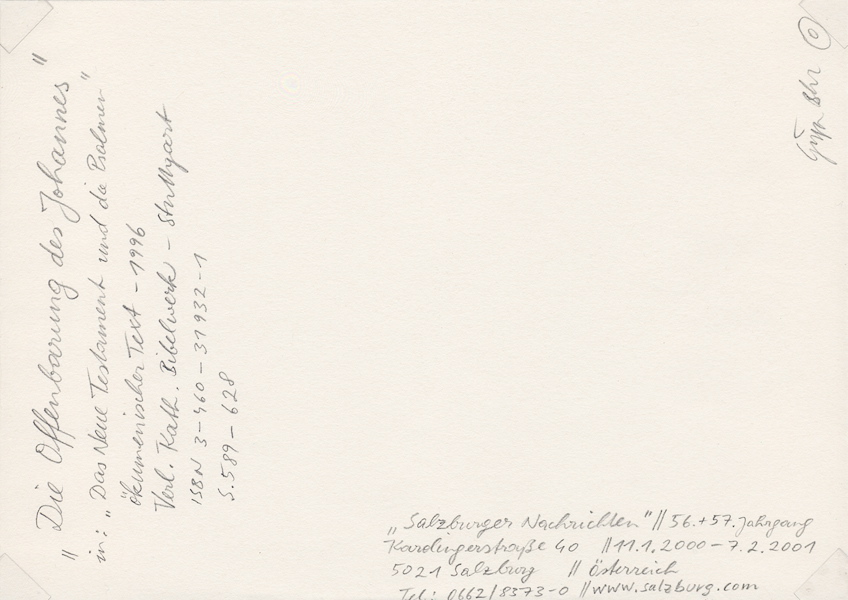 "Die Offenbarung des Johannes"
in: „Das Neue Testament und die Psalmen"
ökumenischer Text – 1996
Verl. Kath. Bibelwerk – Stuttgart
ISBN 3–460–31932–1
S. 589 – 628
„Salzburger Nachrichten" // 56.+57. Jahrgang
Karolingerstraße 40 // 11.1.2000 – 7.2.2001
5021 Salzburg // Österreich
Tel: 0662/8373-0 // www.salzburg.com